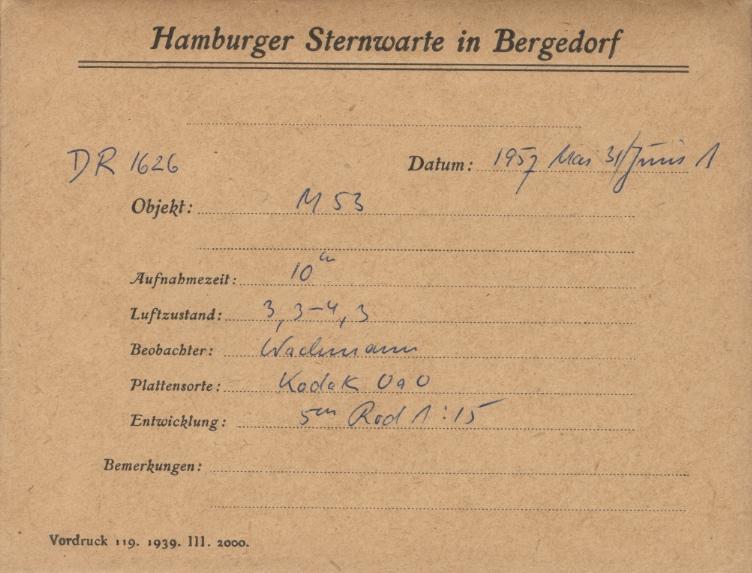 Hamburger Sternwarte in Bergedorf
DR 1626 Datum: 1957 Mai 31/Juni 1
Objekt: M 53
Aufnahmezeit: 10ᵐ
Luftzustand: 3, 3-4, 3
Beobachter: Wachmann
Plattensorte: Kodak OaO
Entwicklung: 5ᵐ Rod 1:15
Bemerkungen:
Vordruck 119. 1939. III. 2000.